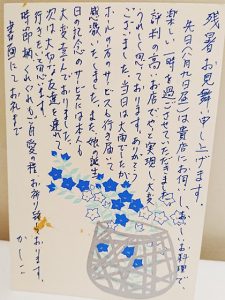 残暑お見舞い申し上げます。
先日八月九日(金)は貴店にお伺いし、おいしいお料理で、
楽しい一時を過ごさせていただきました。
評判の高いお店でやっと実現し大変
うれしく思っております。ありがとう
ございました。当日は
ホール係のサービスも行き届いて
感激いたしました。また、娘の誕生
日の記念のサービスには本人も
大変喜んでおりました。
次は又、友達を連れて
行きたいと思います。
時節柄くれぐれもご自愛の程お祈り致しております。
書面にてお礼まで
かしこ